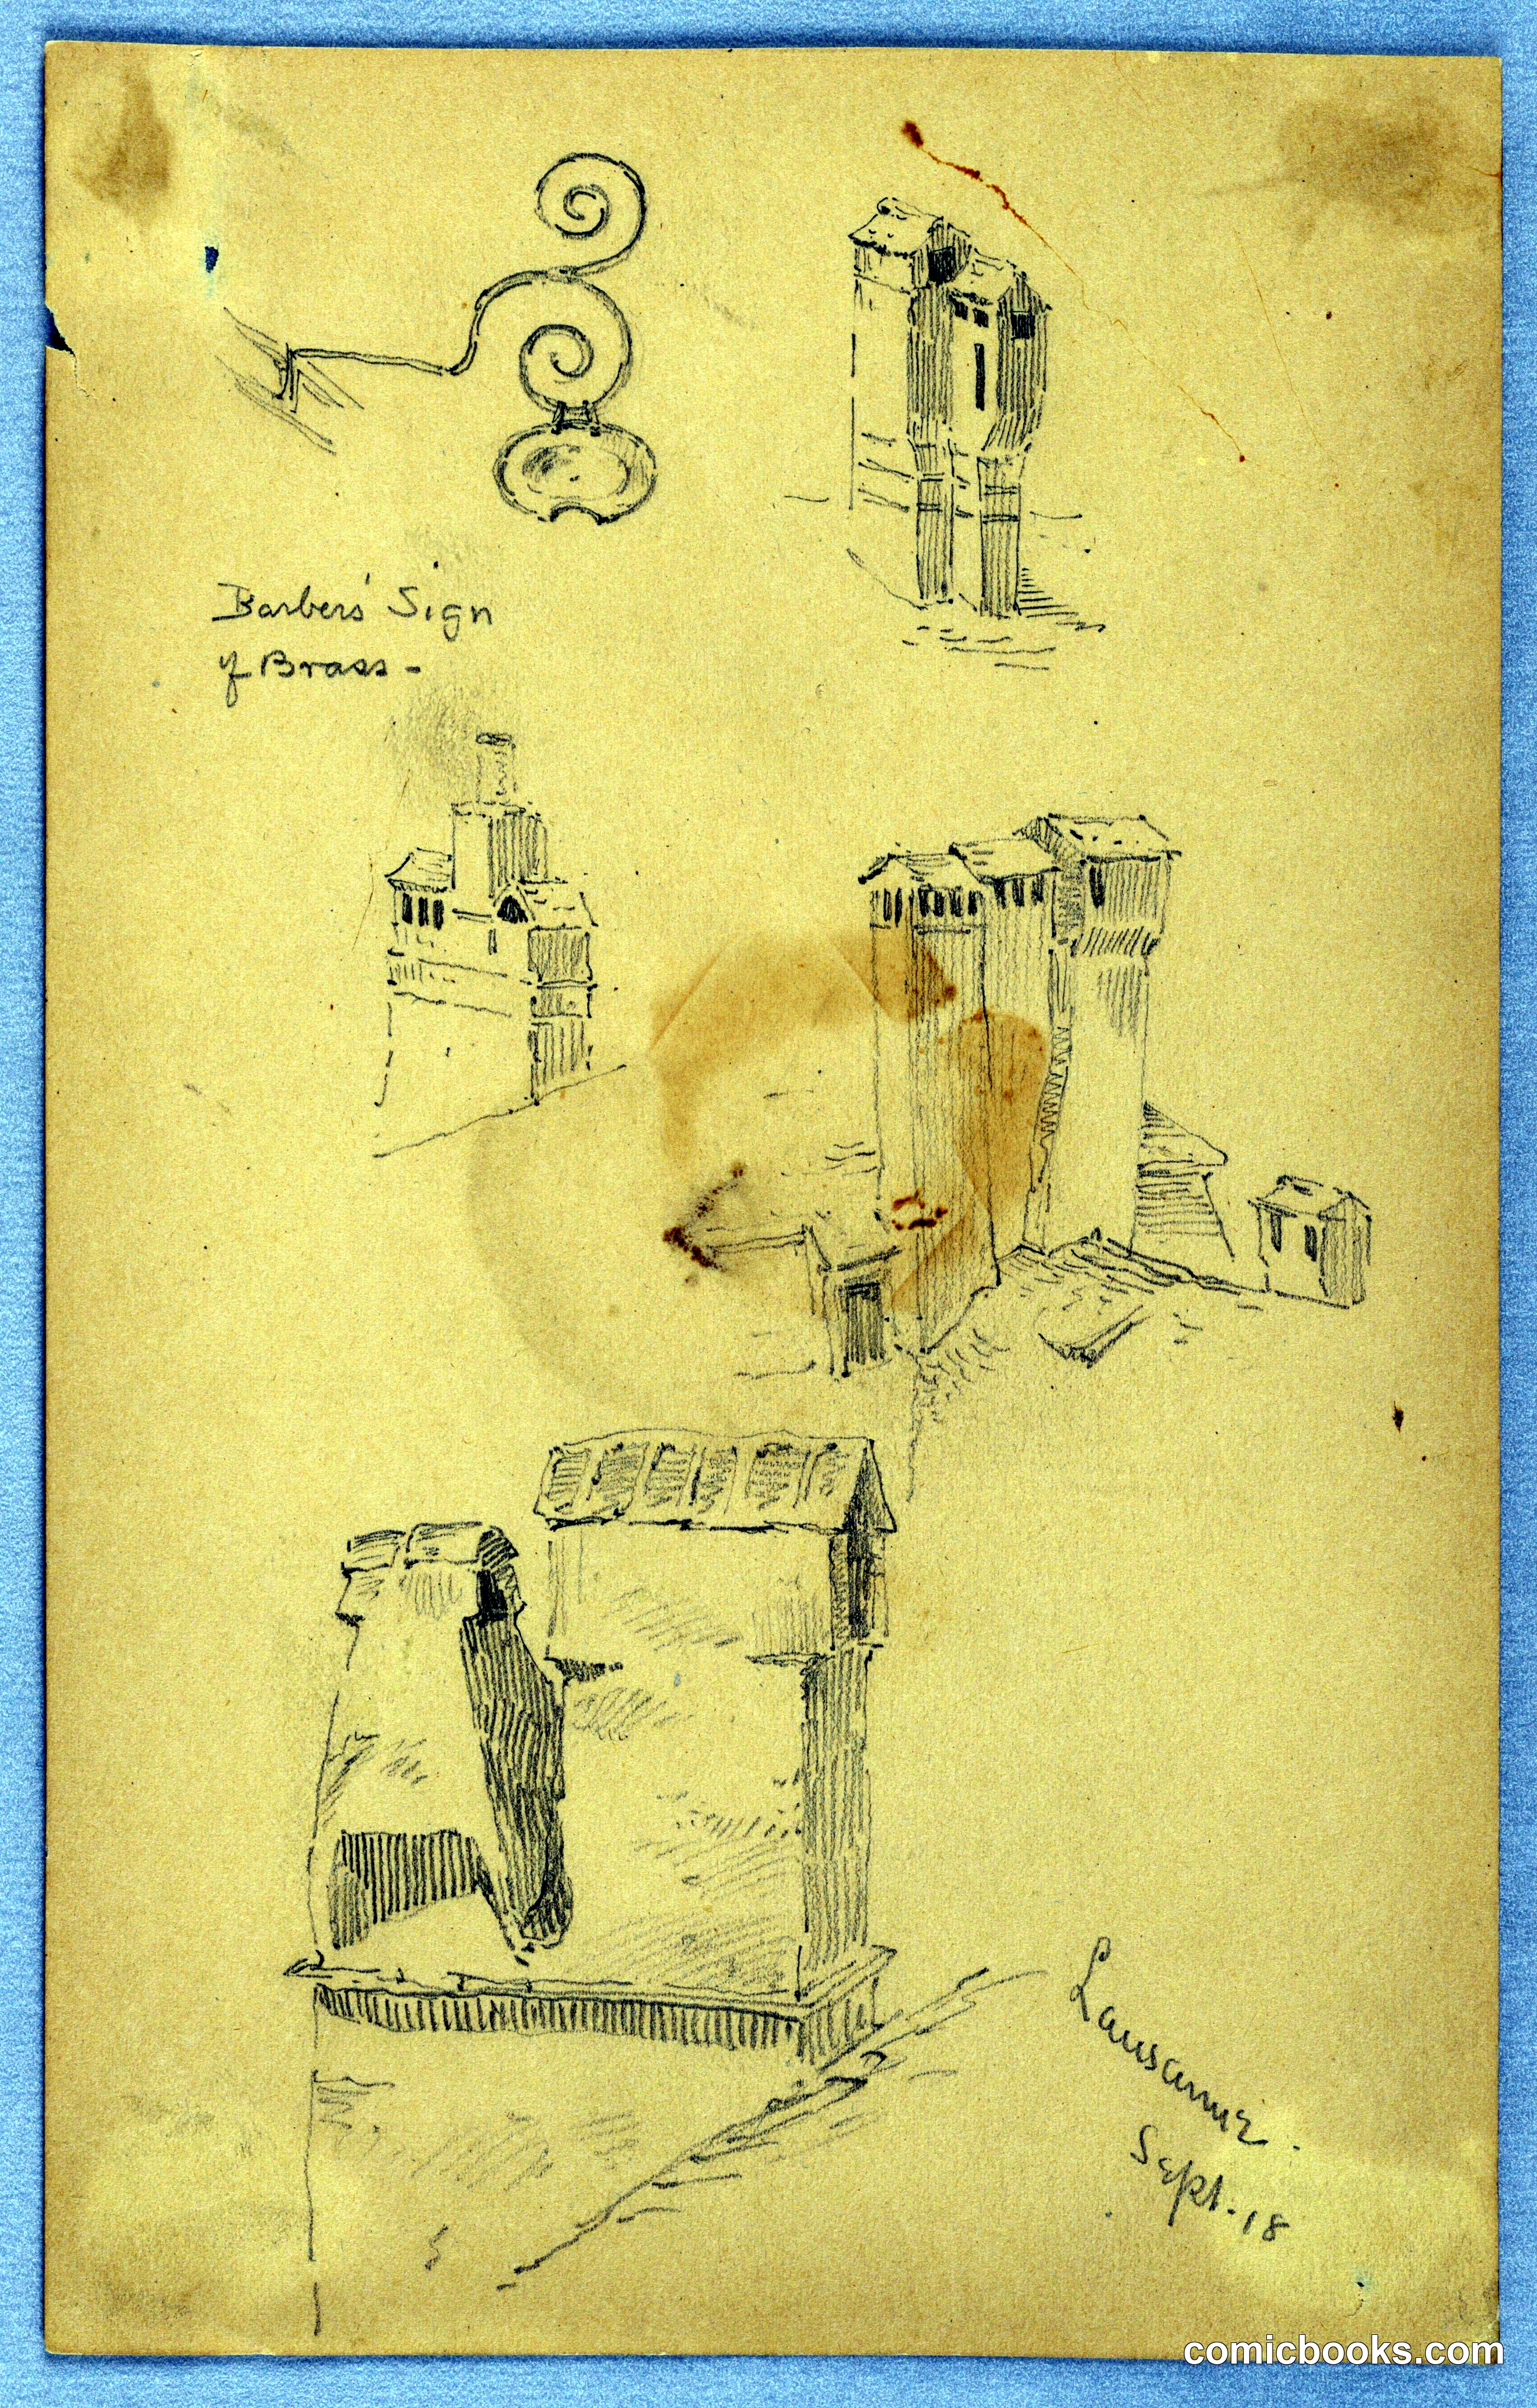 Barbers' Sign
of Brass -
Lausanne.
Sept. 18
comicbooks.com